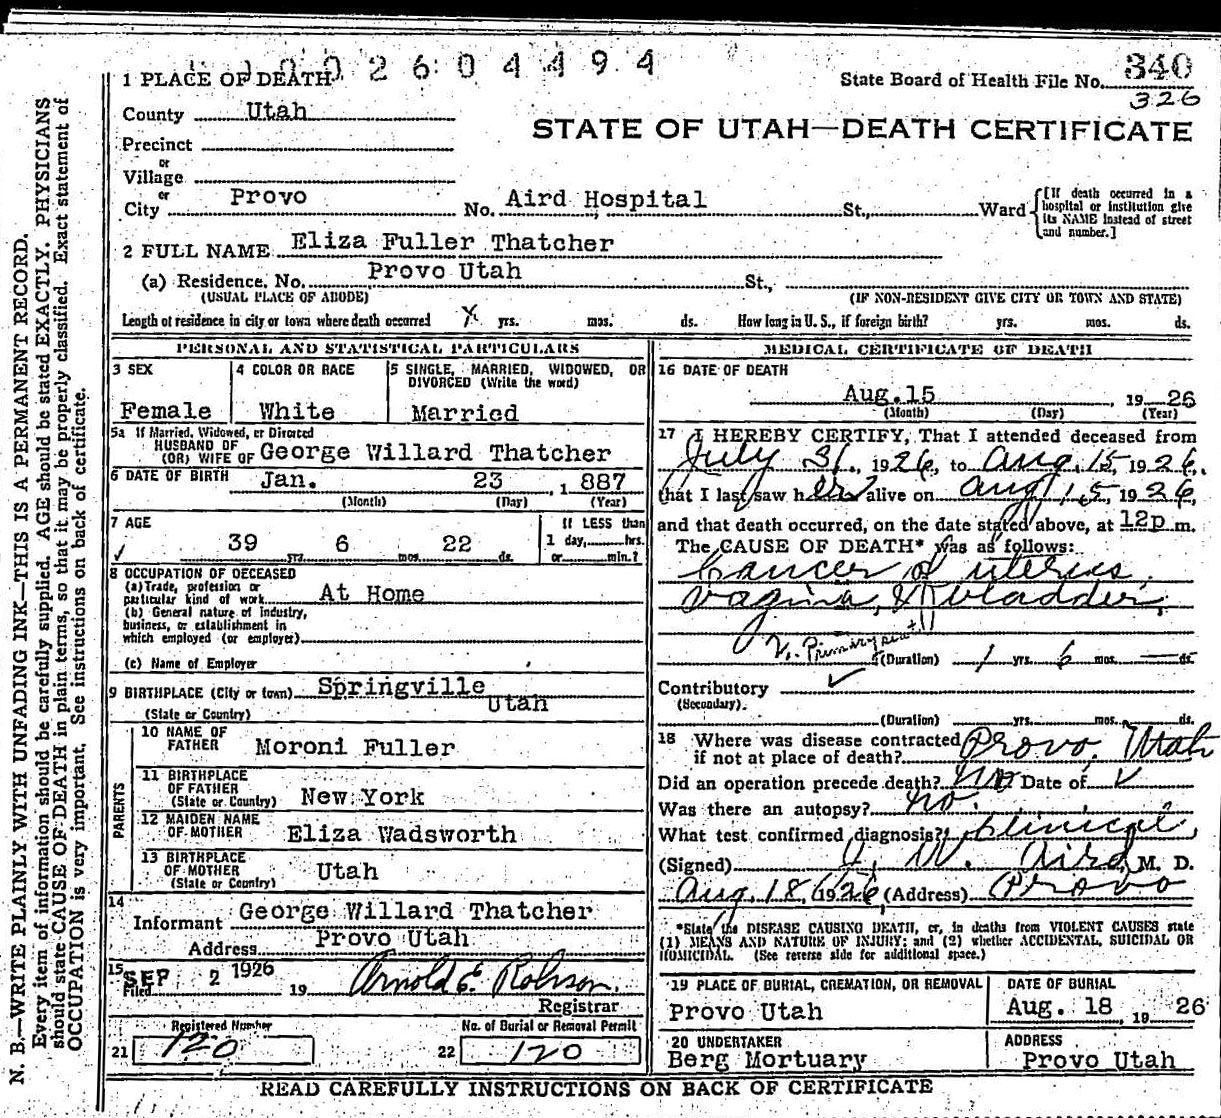 0026 04494
1 PLACE OF DEATH
State Board of Health File No. 340
326
County Utah
STATE OF UTAH—DEATH CERTIFICATE
Precinct
or
Village
or
City Provo No. Aird Hospital St., Ward [If death occurred in a hospital or institution give its NAME instead of street and number.]
2 FULL NAME Eliza Fuller Thatcher
(a) Residence, No. Provo Utah St.,
(USUAL PLACE OF ABODE) (IF NON-RESIDENT GIVE CITY OR TOWN AND STATE)
Length of residence in city or town where death occurred X yrs. mos. ds. How long in U. S., if foreign birth? yrs. mos. ds.
PERSONAL AND STATISTICAL PARTICULARS
3 SEX
Female
4 COLOR OR RACE
White
5 SINGLE, MARRIED, WIDOWED, OR
DIVORCED (Write the word)
Married
5a If Married, Widowed, or Divorced
HUSBAND OF
(OR) WIFE OF George Willard Thatcher
6 DATE OF BIRTH Jan. 23, 1887
(Month) (Day) (Year)
7 AGE
39 yrs. 6 mos. 22 ds.
If LESS than
1 day, hrs.
or min.?
8 OCCUPATION OF DECEASED
(a) Trade, profession or
particular kind of work At Home
(b) General nature of industry,
business, or establishment in
which employed (or employer)
(c) Name of Employer
9 BIRTHPLACE (City or town) Springville
Utah
(State or Country)
PARENTS
10 NAME OF
FATHER Moroni Fuller
11 BIRTHPLACE
OF FATHER
(State or Country) New York
12 MAIDEN NAME
OF MOTHER Eliza Wadsworth
13 BIRTHPLACE
OF MOTHER
(State or Country) Utah
14
Informant George Willard Thatcher
Address Provo Utah
15 SEP 2 1926
Filed 19 Arnold E. Robison.
Registrar
Registered Number
21 120
No. of Burial or Removal Permit
22 120
MEDICAL CERTIFICATE OF DEATH
16 DATE OF DEATH
Aug. 15, 1926
(Month) (Day) (Year)
17 I HEREBY CERTIFY, That I attended deceased from
July 31, 1926, to Aug. 15, 1926,
that I last saw her alive on Aug 15, 1926,
and that death occurred, on the date stated above, at 12p m.
The CAUSE OF DEATH* was as follows:
Cancer of uterus,
vagina, & bladder,
V. Primary seat
(Duration) 1 yrs. 6 mos. — ds.
Contributory
(Secondary).
(Duration) yrs. mos. ds.
18 Where was disease contracted
if not at place of death? Provo, Utah
Did an operation precede death? no Date of
Was there an autopsy? no.
What test confirmed diagnosis? Clinical,
(Signed) J. W. Aird, M. D.
Aug. 18, 1926, (Address) Provo
*State the DISEASE CAUSING DEATH, or, in deaths from VIOLENT CAUSES state
(1) MEANS AND NATURE OF INJURY; and (2) whether ACCIDENTAL, SUICIDAL OR
HOMICIDAL. (See reverse side for additional space.)
19 PLACE OF BURIAL, CREMATION, OR REMOVAL
Provo Utah
DATE OF BURIAL
Aug. 18, 1926
20 UNDERTAKER
Berg Mortuary
ADDRESS
Provo Utah
READ CAREFULLY INSTRUCTIONS ON BACK OF CERTIFICATE
N. B.—WRITE PLAINLY WITH UNFADING INK—THIS IS A PERMANENT RECORD.
Every item of information should be carefully supplied. AGE should be stated EXACTLY. PHYSICIANS
should state CAUSE OF DEATH in plain terms, so that it may be properly classified. Exact statement of
OCCUPATION is very important. See instructions on back of certificate.